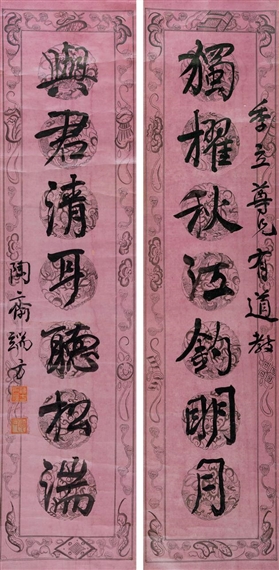 季立尊兄有道教
獨櫂秋江釣明月
與君清耳聽松湍
陶齋端方